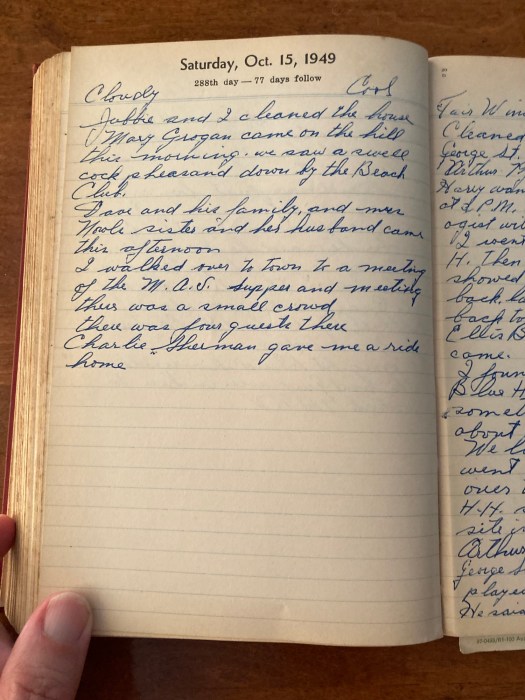 Saturday, Oct. 15, 1949
288th day — 77 days follow
Cloudy Cool
and I cleaned the house
Mary Grogan came on the hill
this morning. we saw a swell
cock pheasand down by the Beach
Club.
Dave and his family, and mrs
sister and her husband came
this afternoon
I walked over to town to a meeting
of the M.A.S. supper and meeting
there was a small crowd
there was four guests there
Charlie Sherman gave me a ride
home
Fair Win
Cleaned
George St.
Arthur
Harry wan
at 1 P.M.
I went
H. Then
showed
back. h
back to
Ellis D
came.
I foun
Blue H
somet
about
We l
went
over
H.H. s
site i
Arthur
George S
playe
He said